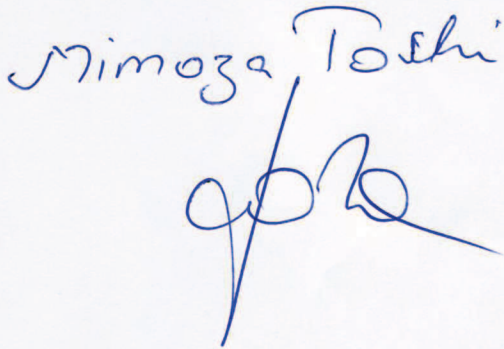 Mimoza Toshi